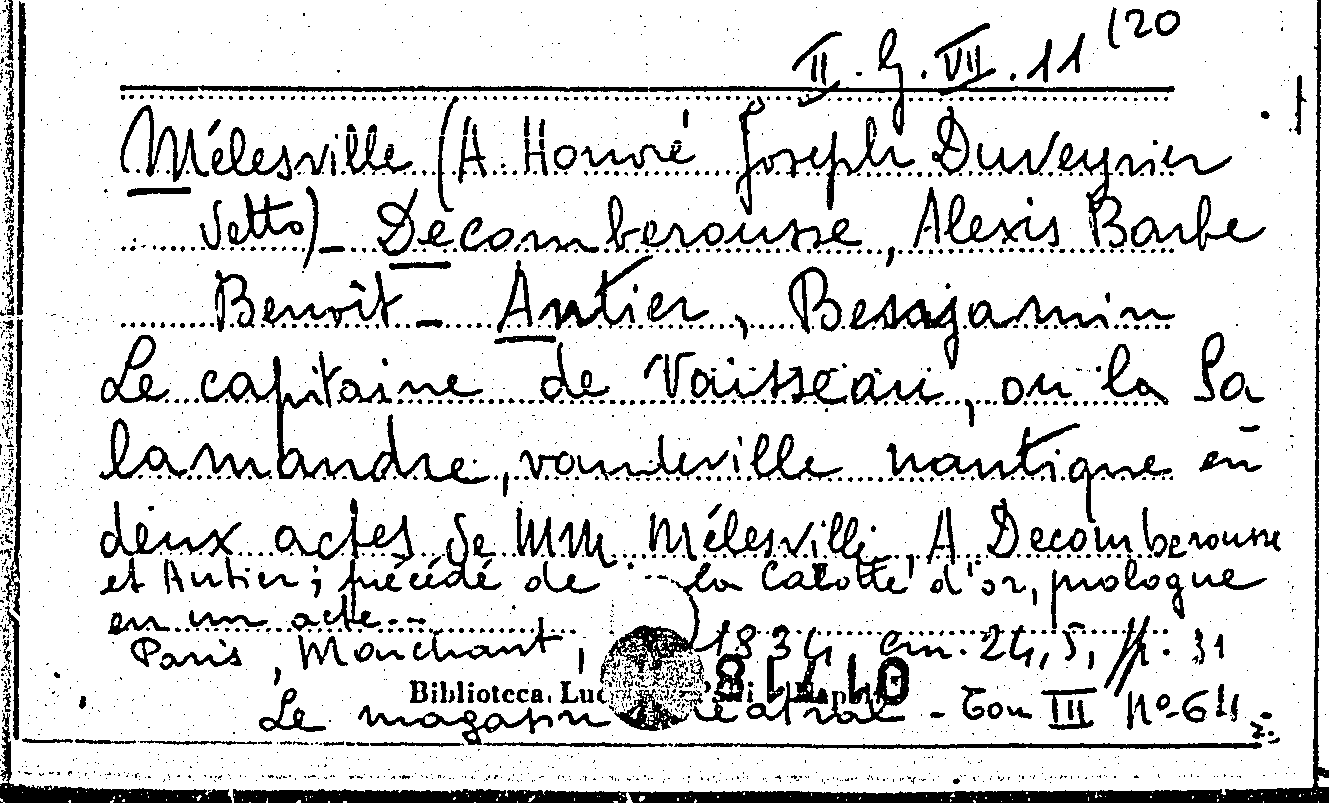 II. G. VII. 11 (20
Mélesville (A. Honoré Joseph Duveyrier
detto) - Decomberousse, Alexis Barbe
Benoît - Antier, Benjamin
Le capitaine de Vaisseau, ou la Sa
lamandre, vaudeville nautique en
deux actes de MM. Mélesville, A Decomberousse
et Antier; précédé de la Calotte d'or, prologue
en un acte...
Paris, Marchant, 1834, cm. 24,5, pp. 31
Biblioteca Luc
01718
Le magasin théatral - Tom III No 64